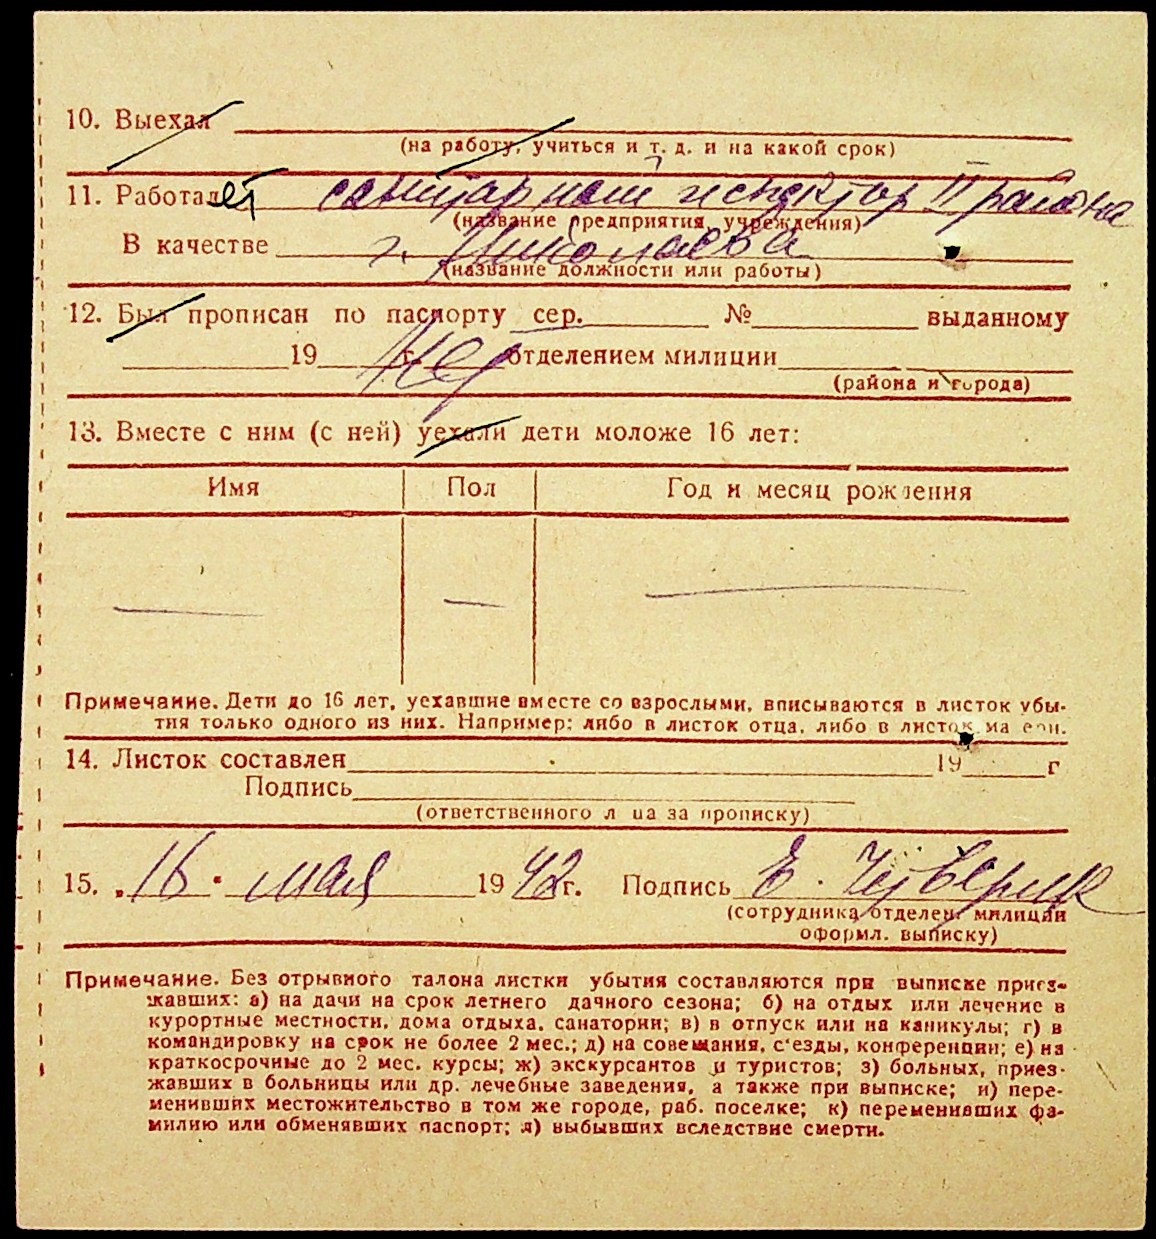 10. Выехал
(на работу, учиться и т. д. и на какой срок)
11. Работает санитарный испектор II района
(название предприятия, учреждения)
В качестве г. Николаева
(название должности или работы)
12. Был прописан по паспорту сер. № выданному
19 г. Нет отделением милиции
(района и города)
13. Вместе с ним (с ней) уехали дети моложе 16 лет:
Имя Пол Год и месяц рождения
— — —
Примечание. Дети до 16 лет, уехавшие вместе со взрослыми, вписываются в листок убы-
тия только одного из них. Например: либо в листок отца, либо в листок ма ери.
14. Листок составлен 19 г
Подпись
(ответственного л ца за прописку)
15. „16" мая 1942 г. Подпись Е. Четверик
(сотрудника отделен. милиции
оформл. выписку)
Примечание. Без отрывного талона листки убытия составляются при выписке приез-
жавших: а) на дачи на срок летнего дачного сезона; б) на отдых или лечение в
курортные местности, дома отдыха, санатории; в) в отпуск или на каникулы; г) в
командировку на срок не более 2 мес.; д) на совещания, с'езды, конференции; е) на
краткосрочные до 2 мес. курсы; ж) экскурсантов и туристов; з) больных, приез-
жавших в больницы или др. лечебные заведения, а также при выписке; и) пере-
менивших местожительство в том же городе, раб. поселке; к) переменивших фа-
милию или обменявших паспорт; л) выбывших вследствие смерти.